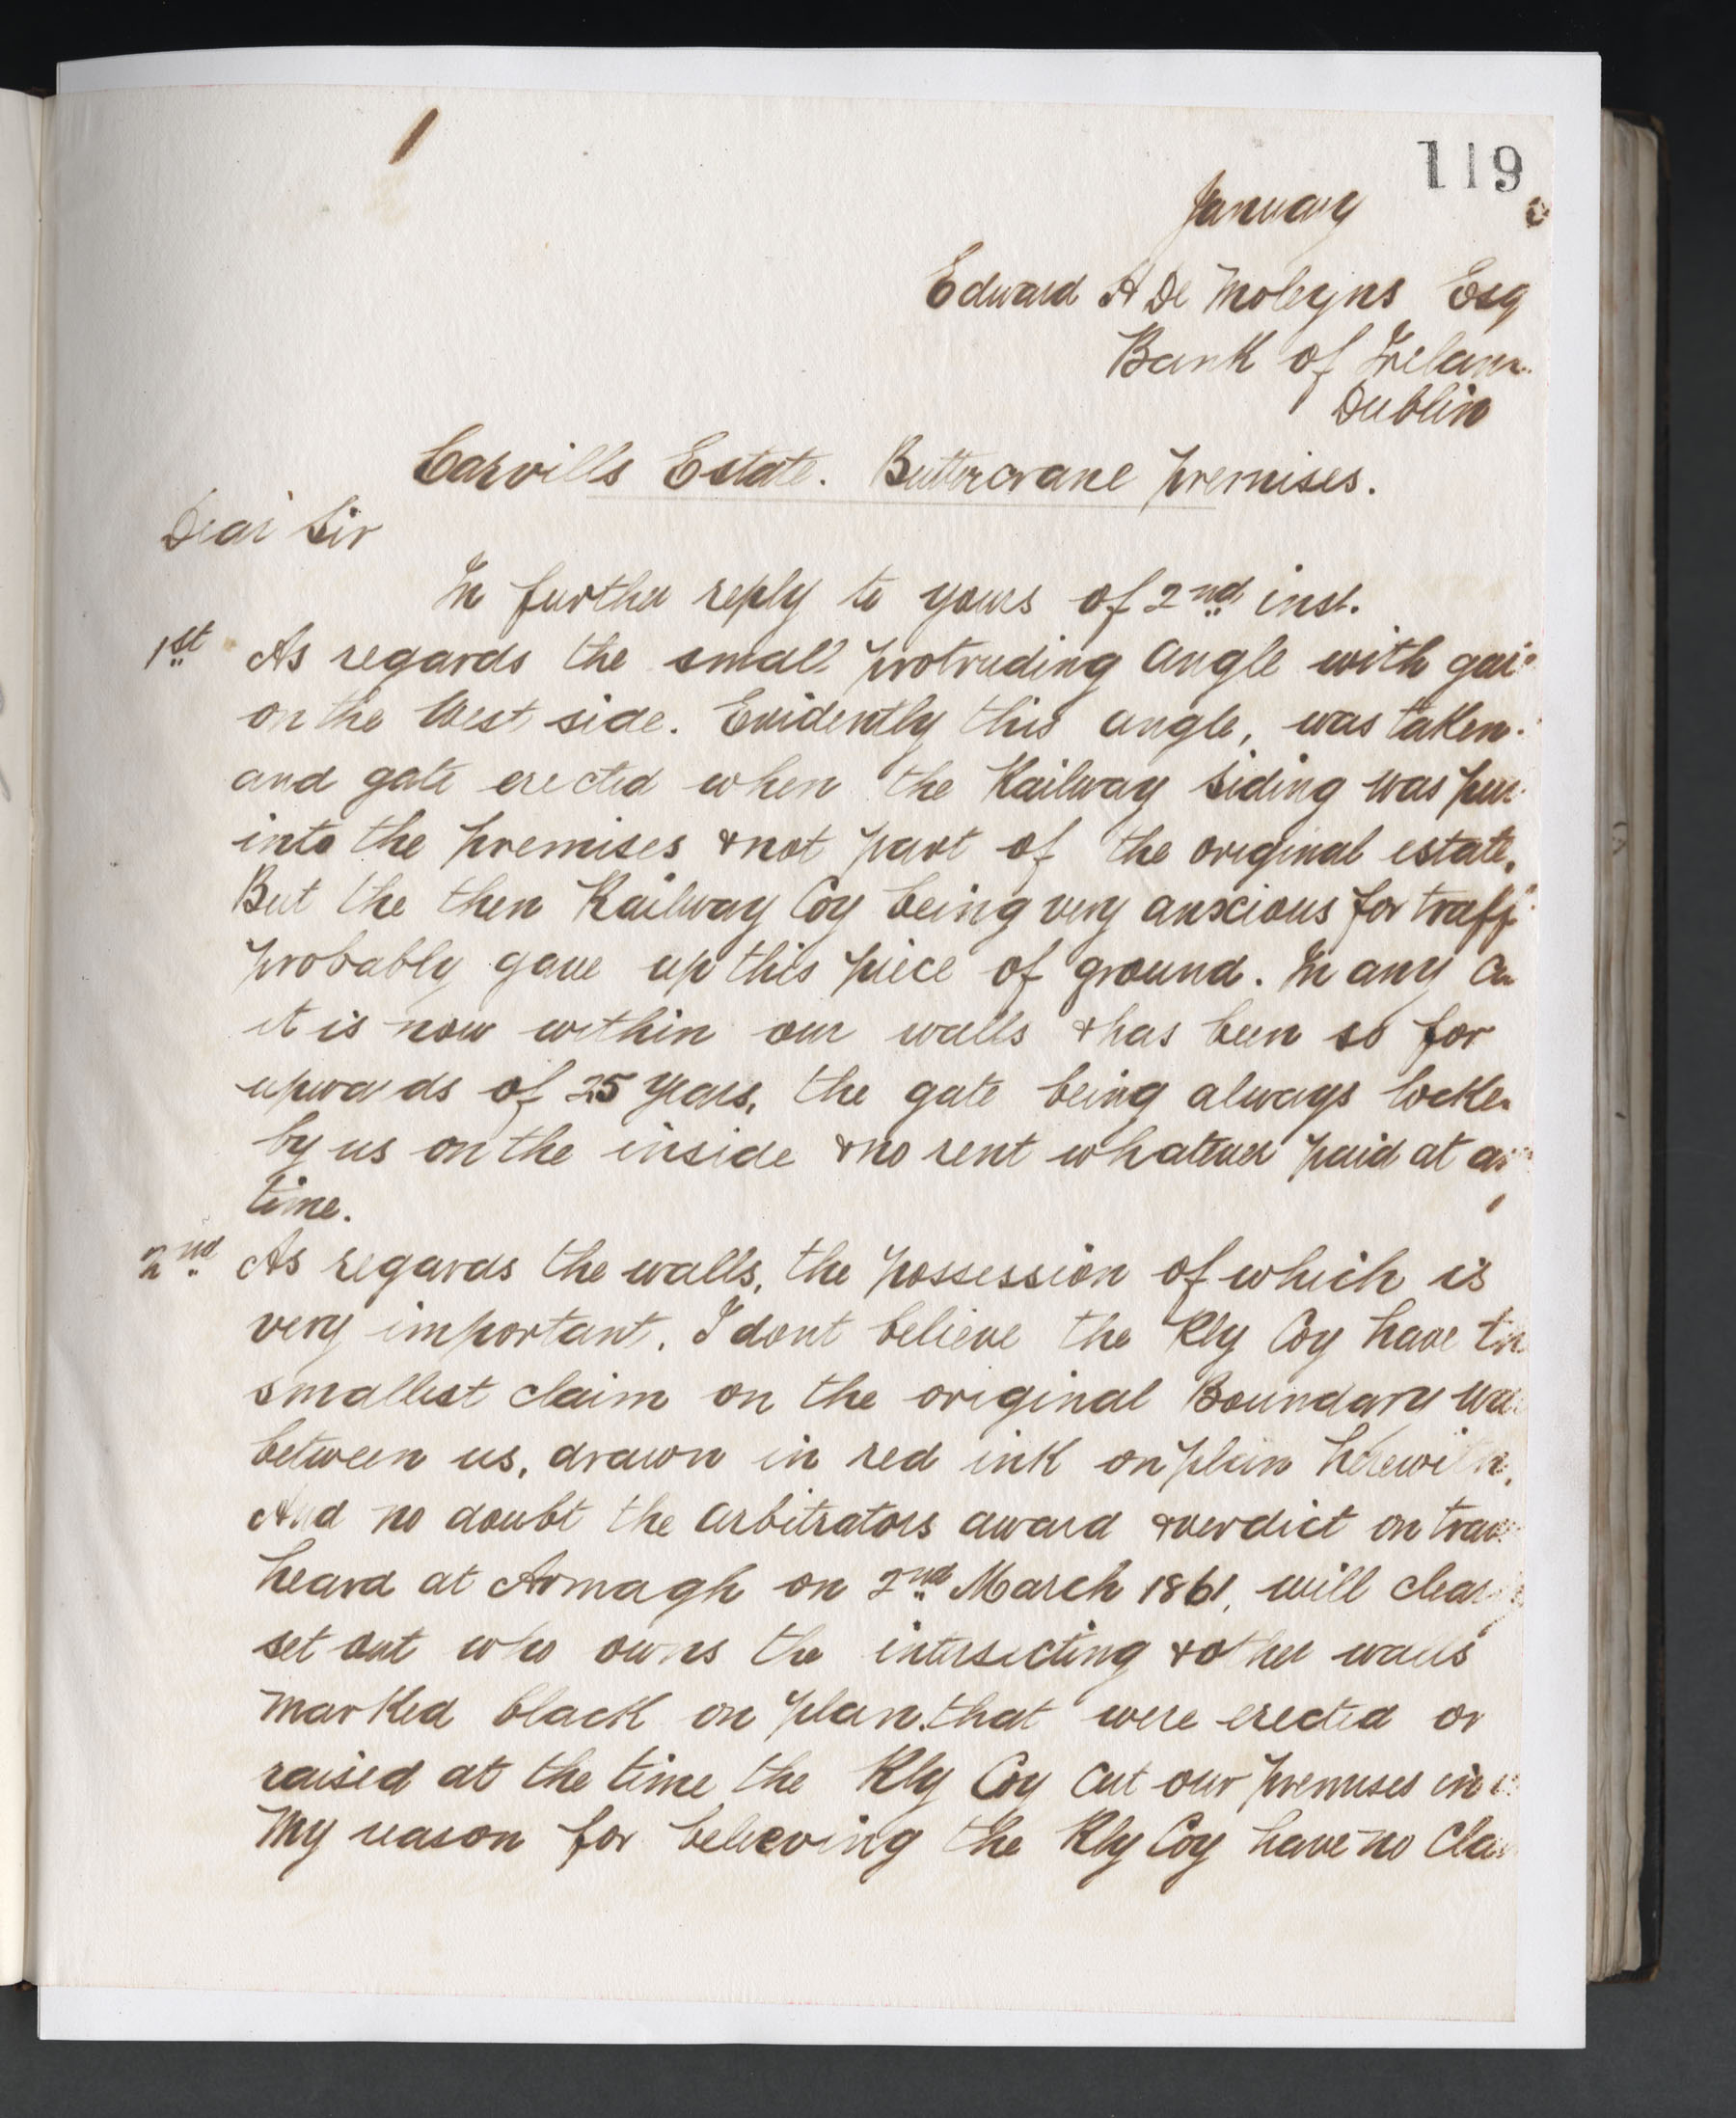 119
January
Edward A De Moleyns Esq
Bank of Irelan
Dublin
Carvills Estate. Buttercrane premises.
Dear Sir
In further reply to yours of 2nd inst.
1st As regards the small protruding angle with
on the West side. Evidently this angle, was taken
and gate erected when the Railway Siding was
into the premises & not part of the original estate.
But the then Railway Coy being very anxious for traff
probably gave up this piece of ground. In any
it is now within our walls & has been so for
upwards of 25 years, the gate being always locke
by us on the inside & no rent whatever paid at
time.
2nd As regards the walls, the possession of which is
very important. I dont believe the Rly Coy have th
smallest claim on the original Boundary Wa
between us, drawn in red ink on plan herewith.
And no doubt the arbitrators award & verdict on trav
heard at Armagh on 2nd March 1861, will clear
set out who owns the intersecting & other walls
marked black on plan. that were erected or
raised at the time the Rly Coy cut our premises in
My reason for believing the Rly Coy have no Cla